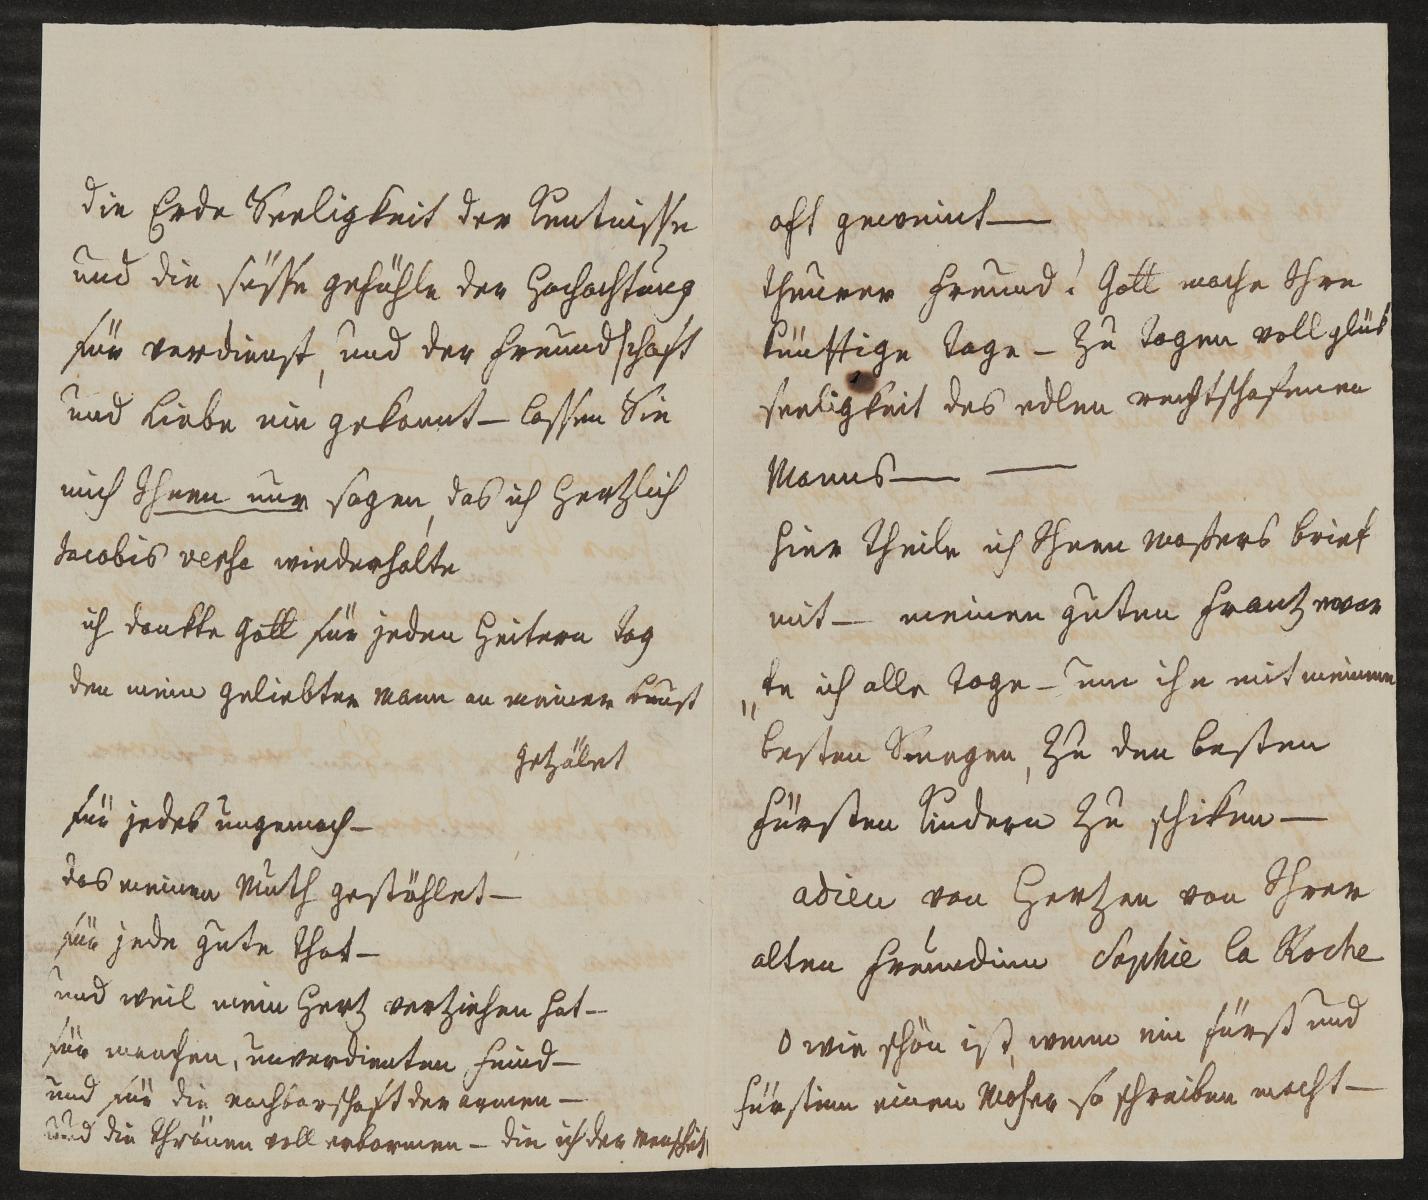 die Erde Seeligkeit der Kentnisse
und die süsse gefühle der Hochachtung
für verdienst, und der Freundschaft
und Liebe nie gekannt – lassen Sie
mich Ihnen nur sagen, das ich Hertzlich
Jacobis verse wiederholte
ich dankte Gott für jeden Heitern Tag
den mein geliebter Mann an meiner Brust
gezälet
für jedes ungemach –
das meinen Muth gestählet –
für jede gute That –
und weil mein Hertz vertziehen hat –
für manchen, unverdienten Feind –
und für die nachbarschaft der armen –
und die Thränen voll erbarmen – die ich der Menschheit
oft geweint –
Theurer Freund! Gott mache Ihre
künftige Tage – zu Tagen voll glük
seeligkeit des edlen rechtschafenen
Manns – –
hier Theile ich Ihnen Mosers brief
mit – meinen guten Frantz erwar
„te ich alle Tage – um ihn mit meinem
besten Seegen, zu den besten
Fürsten Kindern zu schiken –
adieu von Hertzen von Ihrer
alten Freundinn Sophie la Roche
O wie schön ist, wenn ein Fürst und
Fürstinn einen Moser so schreiben macht –